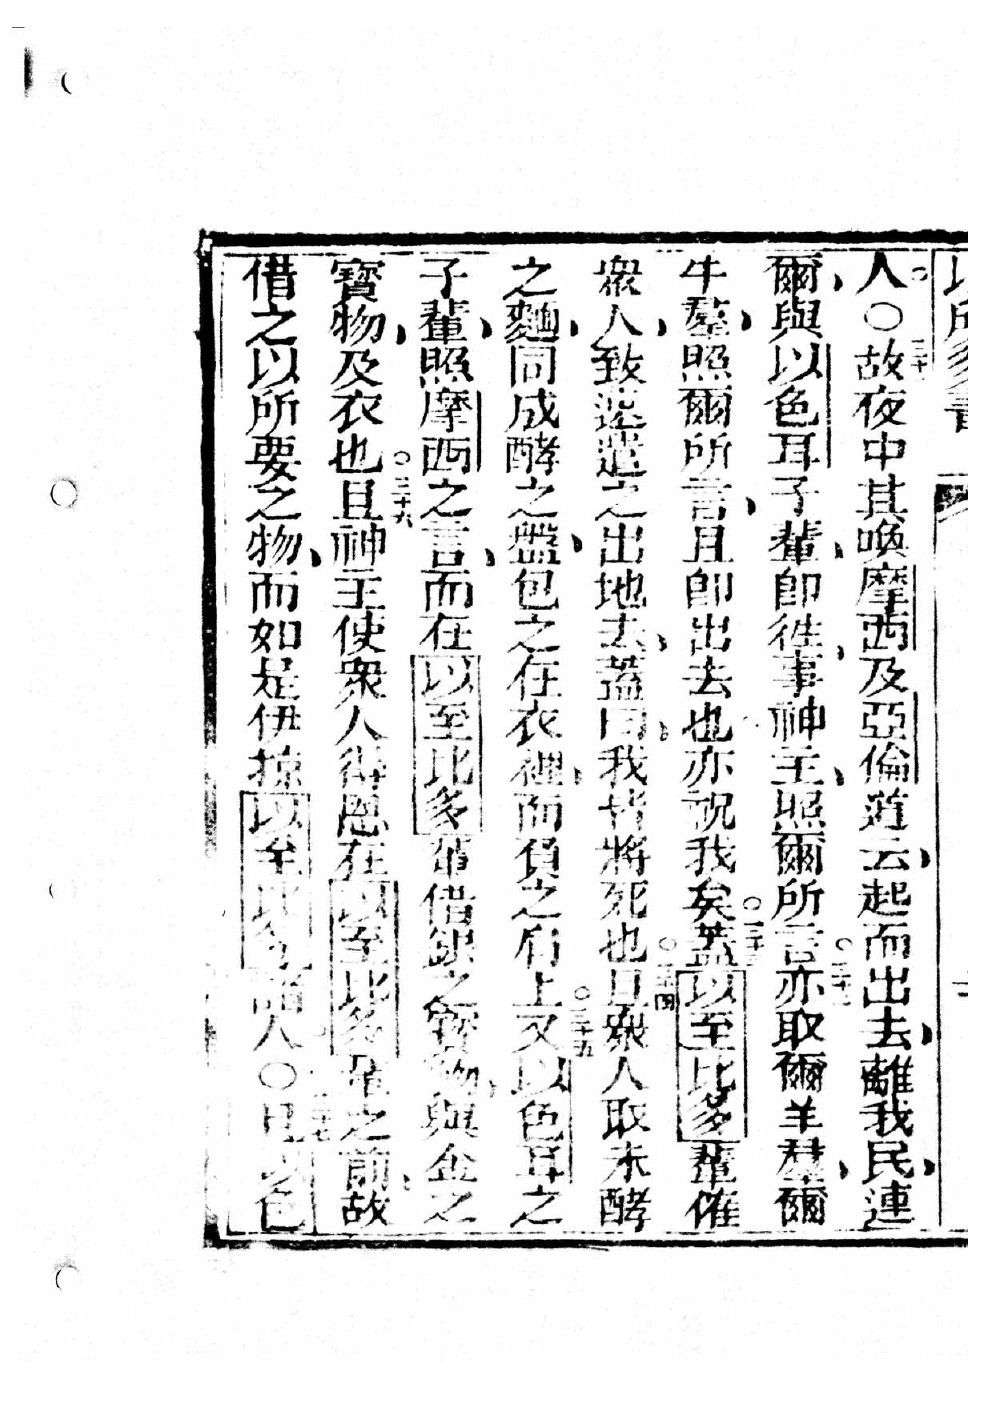 人○故夜中其喚摩西及亞倫道云起而出去離我民連
三十一
爾與以色耳子輩即往事神主照爾所言亦取爾羊羣爾
三十二
牛羣照爾所言且即出去也亦祝我矣蓋以至比多輩催
三十三
衆人致速遣之出地去蓋曰我皆將死也且衆人取未酵
三十四
之麵同成酵之盤包之在衣裡而負之肩上又以色耳之
三十五
子輩照摩西之言而在以至比多輩借銀之寶物與金之
寶物及衣也且神主使衆人得恩在以至比多輩之前故
三十六
借之以所要之物而如是伊掠以至比多諸人○且以色